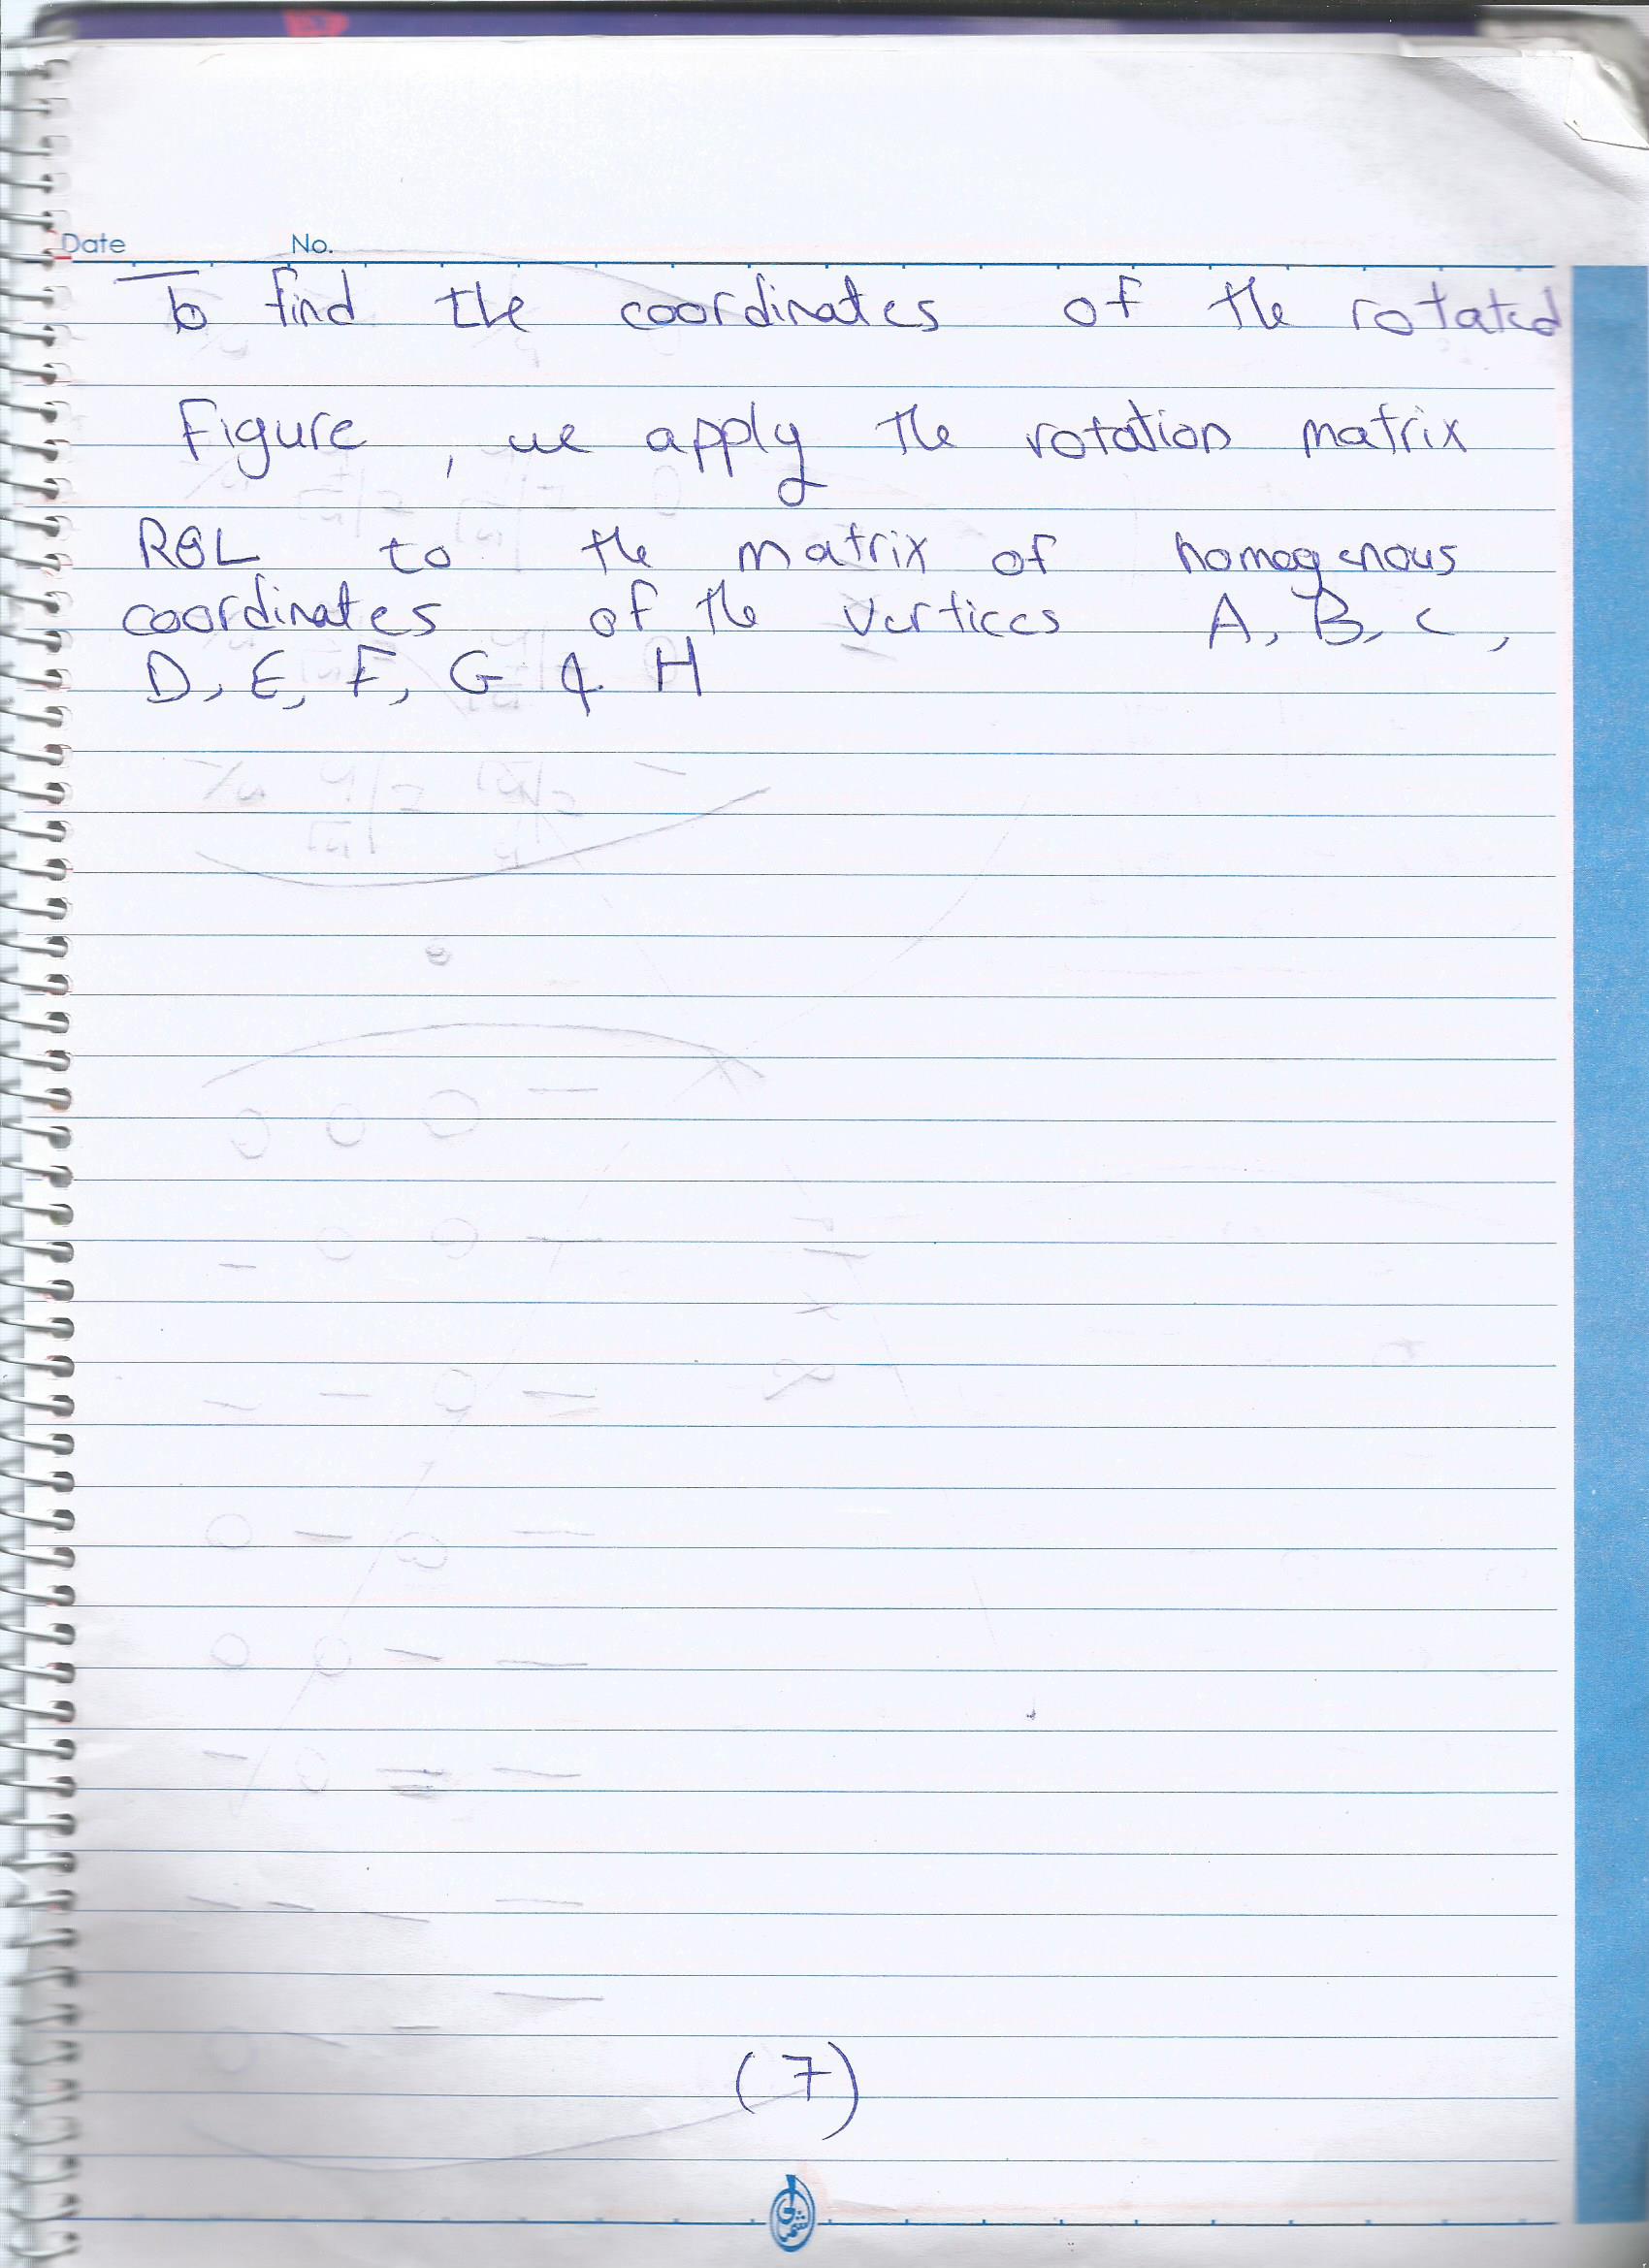 Date No.
To find the coordinates of the rotated
Figure, we apply the rotation matrix
RθL to the matrix of homogenous
coordinates of the vertices A, B, C,
D, E, F, G & H
(7)